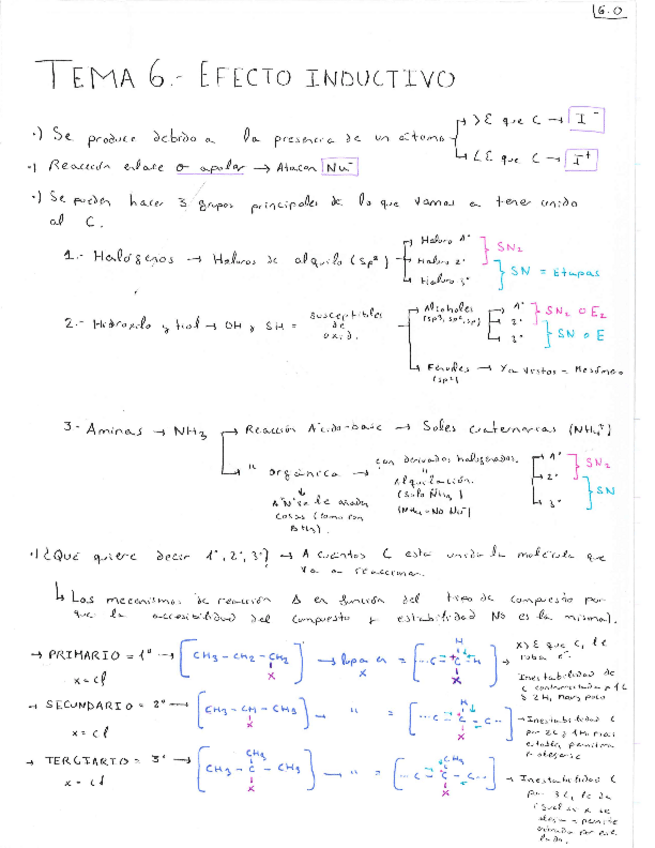 6.0
TEMA 6.- EFECTO INDUCTIVO
·) Se produce debido a la presencia de un átomo
>ε que C → I⁻
<ε que C → I⁺
·) Reacción enlace σ apolar → Atacan Nu⁻
·) Se pueden hacer 3 grupos principales de lo que vamos a tener unido
al C.
1.- Halógenos → Haluros de alquilo (sp³)
Haluro 1º
Haluro 2º
Haluro 3º
SN2
SN = Etapas
2.- Hidroxilo y tiol → OH y SH = susceptibles
de
oxid.
Alcoholes
(sp3, sp2, sp)
1º
2º
3º
SN2 o E2
SN o E
Fenoles → Ya vistos = Mesómero
(sp2)
3.- Aminas → NH3
Reacción Ácido-base → Sales cuaternarias (NH4⁺)
" orgánica → con derivados halogenados.
"
Alquilación.
(solo NH3)
1º
2º
3º
SN2
SN
A "N" se le añaden
cosas (como con
·) ¿Qué quiere decir 1º, 2º, 3º? → A cuántos C está unida la molécula que
va a reaccionar.
Los mecanismos de reacción Δ en función del tipo de compuesto por
que la accesibilidad del compuesto y estabilidad No es la misma).
→ PRIMARIO = 1º → [CH3 - CH2 - CH2] → = [··C - C - H]
X H X
x = Cl
x>ε que C, le
roba e⁻.
Inestabilidad de
C
→ SECUNDARIO = 2º → [CH3 - CH - CH3] → " = [··C - C - C··]
X H X
x = Cl
→ Inestabilidad C
por 2C y 1H, más
→ TERCIARIO = 3º → [CH3 - C - CH3] → " = [··C - C - C··]
CH3 X CH3 X
x = Cl
→ Inestabilidad C
por 3C, le da
igual